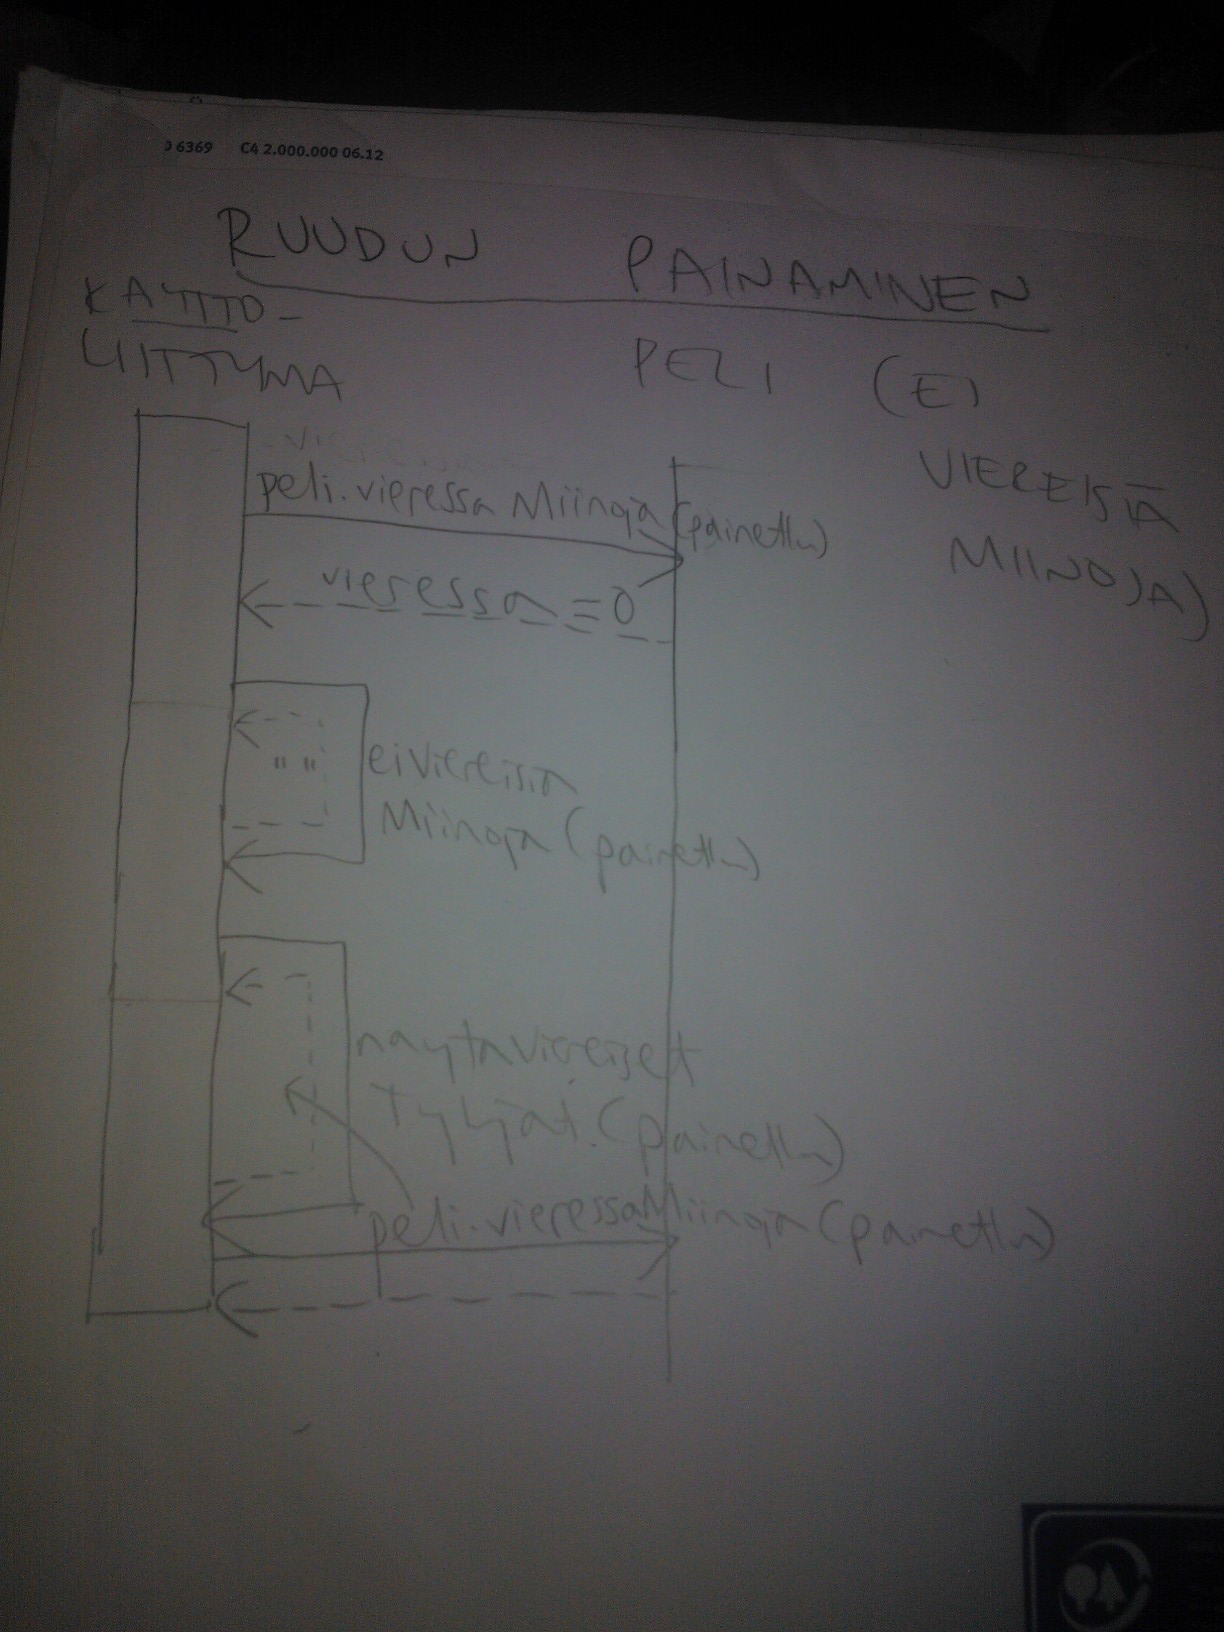 06369 C4 2.000.000 06.12
RUUDUN PAINAMINEN
KÄYTTÖ-
LIITTYMÄ
PELI (EI
VIEREISIÄ
MIINOJA)
peli.vieressaMiinoja(painettu)
vieressa = 0
" "
eiViereisia
Miinoja(painettu)
naytaViereiset
Tyhjat.(painettu)
peli.vieressaMiinoja(painettu)